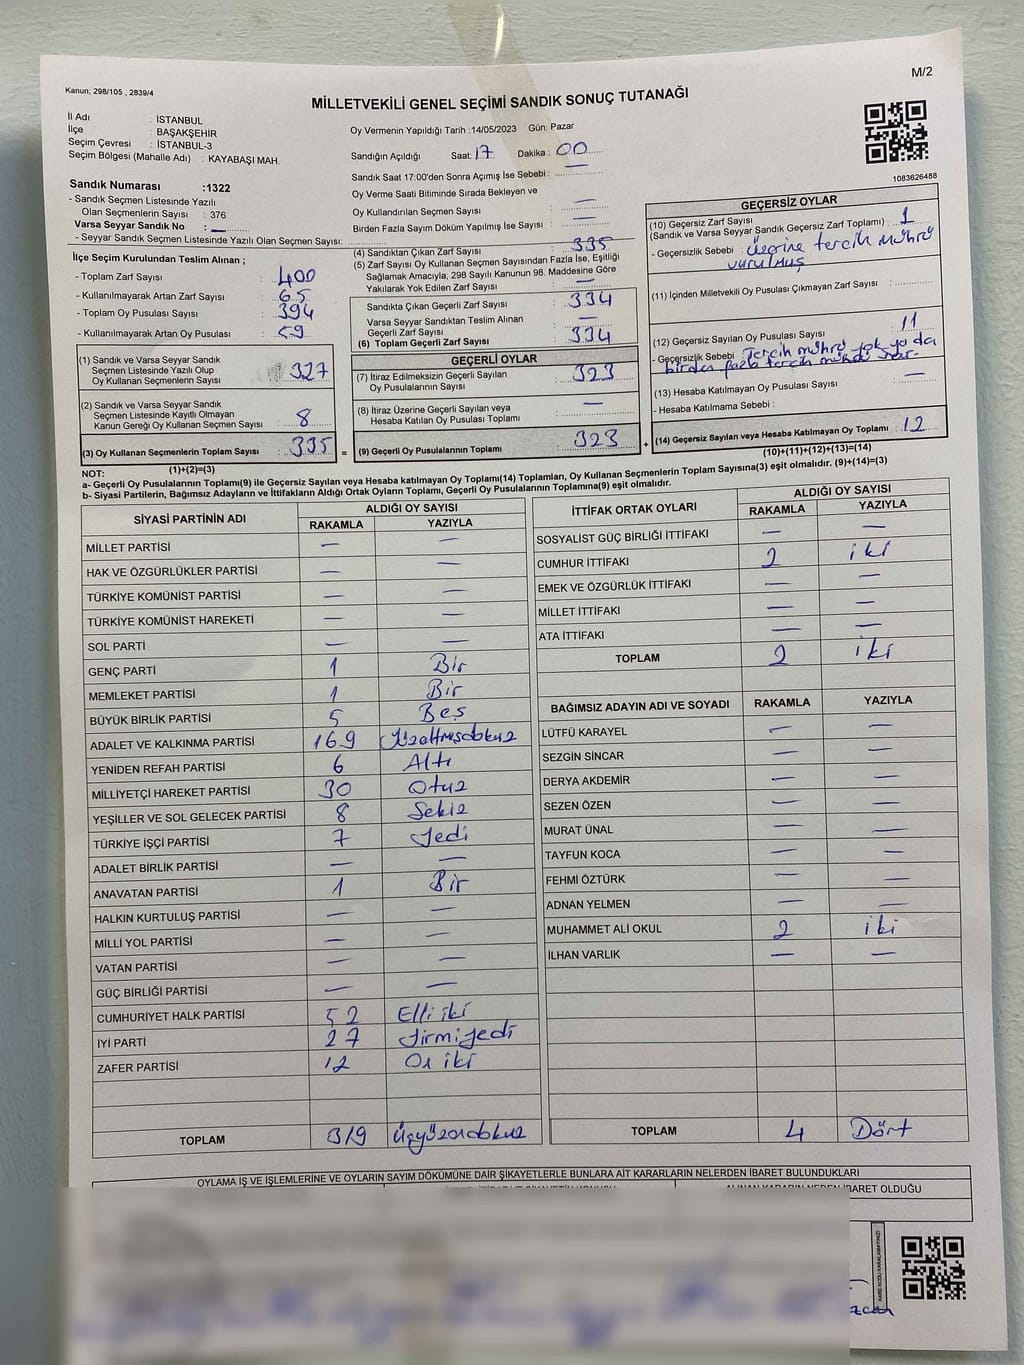 M/2
Kanun; 298/105 , 2839/4
MİLLETVEKİLİ GENEL SEÇİMİ SANDIK SONUÇ TUTANAĞI
İl Adı : İSTANBUL
İlçe : BAŞAKŞEHİR
Seçim Çevresi : İSTANBUL-3
Seçim Bölgesi (Mahalle Adı) : KAYABAŞI MAH.
Sandık Numarası :1322
- Sandık Seçmen Listesinde Yazılı
Olan Seçmenlerin Sayısı : 376
Varsa Seyyar Sandık No : —
- Seyyar Sandık Seçmen Listesinde Yazılı Olan Seçmen Sayısı:
İlçe Seçim Kurulundan Teslim Alınan ;
- Toplam Zarf Sayısı : 400
- Kullanılmayarak Artan Zarf Sayısı : 65
- Toplam Oy Pusulası Sayısı : 394
- Kullanılmayarak Artan Oy Pusulası : 59
(1) Sandık ve Varsa Seyyar Sandık
Seçmen Listesinde Yazılı Olup
Oy Kullanan Seçmenlerin Sayısı : 327
(2) Sandık ve Varsa Seyyar Sandık
Seçmen Listesinde Kayıtlı Olmayan
Kanun Gereği Oy Kullanan Seçmen Sayısı : 8
(3) Oy Kullanan Seçmenlerin Toplam Sayısı : 335
(1)+(2)=(3)
Oy Vermenin Yapıldığı Tarih :14/05/2023 Gün: Pazar
Sandığın Açıldığı Saat: 17 Dakika : 00
Sandık Saat 17:00'den Sonra Açımış İse Sebebi : —
Oy Verme Saati Bitiminde Sırada Bekleyen ve
Oy Kullandırılan Seçmen Sayısı —
Birden Fazla Sayım Döküm Yapılmış İse Sayısı —
(4) Sandıktan Çıkan Zarf Sayısı 335
(5) Zarf Sayısı Oy Kullanan Seçmen Sayısından Fazla İse, Eşitliği
Sağlamak Amacıyla, 298 Sayılı Kanunun 98. Maddesine Göre
Yakılarak Yok Edilen Zarf Sayısı —
Sandıkta Çıkan Geçerli Zarf Sayısı : 334
Varsa Seyyar Sandıktan Teslim Alınan
Geçerli Zarf Sayısı : —
(6) Toplam Geçerli Zarf Sayısı : 334
GEÇERLİ OYLAR
(7) İtiraz Edilmeksizin Geçerli Sayılan
Oy Pusulalarının Sayısı : 323
(8) İtiraz Üzerine Geçerli Sayılan veya
Hesaba Katılan Oy Pusulası Toplamı : —
= (9) Geçerli Oy Pusulalarının Toplamı : 323
1083626488
GEÇERSİZ OYLAR
(10) Geçersiz Zarf Sayısı
(Sandık ve Varsa Seyyar Sandık Geçersiz Zarf Toplamı) : 1
- Geçersizlik Sebebi : üzerine tercih mührü
vurulmuş
(11) İçinden Milletvekili Oy Pusulası Çıkmayan Zarf Sayısı :
(12) Geçersiz Sayılan Oy Pusulası Sayısı : 11
- Geçersizlik Sebebi : Tercih mührü yok ya da
birden fazla tercih mührü var.
(13) Hesaba Katılmayan Oy Pusulası Sayısı : —
- Hesaba Katılmama Sebebi :
+ (14) Geçersiz Sayılan veya Hesaba Katılmayan Oy Toplamı : 12
(10)+(11)+(12)+(13)=(14)
NOT:
a- Geçerli Oy Pusulalarının Toplamı(9) ile Geçersiz Sayılan veya Hesaba katılmayan Oy Toplamı(14) Toplamları, Oy Kullanan Seçmenlerin Toplam Sayısına(3) eşit olmalıdır. (9)+(14)=(3)
b- Siyasi Partilerin, Bağımsız Adayların ve İttifakların Aldığı Ortak Oyların Toplamı, Geçerli Oy Pusulalarının Toplamına(9) eşit olmalıdır.
SİYASİ PARTİNİN ADI ALDIĞI OY SAYISI
RAKAMLA YAZIYLA
MİLLET PARTİSİ — —
HAK VE ÖZGÜRLÜKLER PARTİSİ — —
TÜRKİYE KOMÜNİST PARTİSİ — —
TÜRKİYE KOMÜNİST HAREKETİ — —
SOL PARTİ — —
GENÇ PARTİ 1 Bir
MEMLEKET PARTİSİ 1 Bir
BÜYÜK BİRLİK PARTİSİ 5 Beş
ADALET VE KALKINMA PARTİSİ 169 Yüzaltmışdokuz
YENİDEN REFAH PARTİSİ 6 Altı
MİLLİYETÇİ HAREKET PARTİSİ 30 Otuz
YEŞİLLER VE SOL GELECEK PARTİSİ 8 Sekiz
TÜRKİYE İŞÇİ PARTİSİ 7 Yedi
ADALET BİRLİK PARTİSİ — —
ANAVATAN PARTİSİ 1 Bir
HALKIN KURTULUŞ PARTİSİ — —
MİLLİ YOL PARTİSİ — —
VATAN PARTİSİ — —
GÜÇ BİRLİĞİ PARTİSİ — —
CUMHURİYET HALK PARTİSİ 52 Elli iki
İYİ PARTİ 27 Yirmi yedi
ZAFER PARTİSİ 12 On iki
TOPLAM 319 Üçyüzondokuz
İTTİFAK ORTAK OYLARI ALDIĞI OY SAYISI
RAKAMLA YAZIYLA
SOSYALİST GÜÇ BİRLİĞİ İTTİFAKI — —
CUMHUR İTTİFAKI 2 iki
EMEK VE ÖZGÜRLÜK İTTİFAKI — —
MİLLET İTTİFAKI — —
ATA İTTİFAKI — —
TOPLAM 2 iki
BAĞIMSIZ ADAYIN ADI VE SOYADI RAKAMLA YAZIYLA
LÜTFÜ KARAYEL — —
SEZGİN SİNCAR — —
DERYA AKDEMİR — —
SEZEN ÖZEN — —
MURAT ÜNAL — —
TAYFUN KOCA — —
FEHMİ ÖZTÜRK — —
ADNAN YELMEN — —
MUHAMMET ALİ OKUL 2 iki
İLHAN VARLIK — —
TOPLAM 4 Dört
OYLAMA İŞ VE İŞLEMLERİNE VE OYLARIN SAYIM DÖKÜMÜNE DAİR ŞİKAYETLERLE BUNLARA AİT KARARLARIN NELERDEN İBARET BULUNDUKLARI
ALINAN KARARIN NEDEN İBARET OLDUĞU